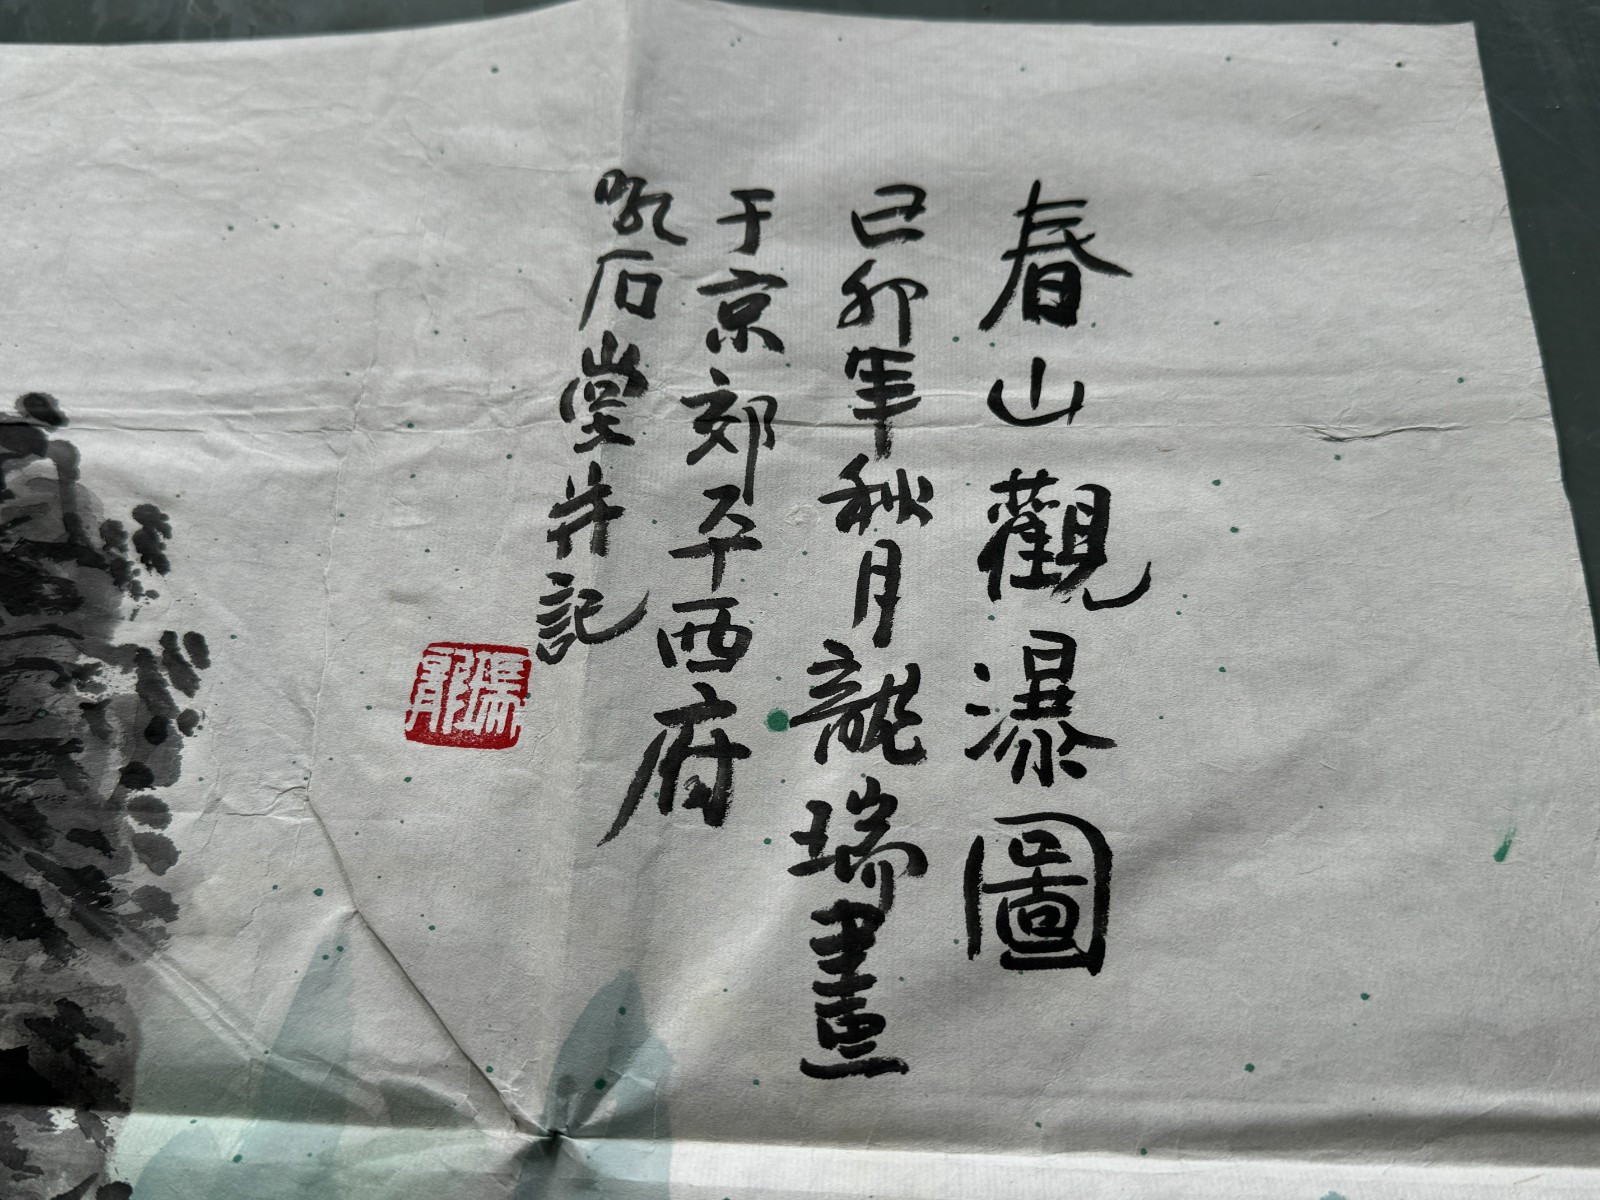 春山觀瀑圖
己卯年秋月龍瑞畫
于京郊平西府
吼石堂并記